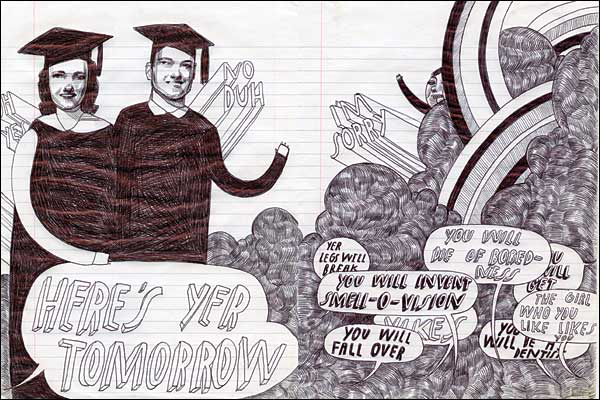 H
YE
NO
DUH
I'M
SORRY
HERE'S YER
TOMORROW
YER
LEGS WILL
BREAK
YOU WILL INVENT
SMELL-O-VISION
YIKES
YOU WILL
FALL OVER
YOU WILL
DIE OF BORED-
NESS
U
ILL
GET
THE GIRL
WHO YOU
LIKE LIKES
YOU
YOU
WILL BE A
DENTIS